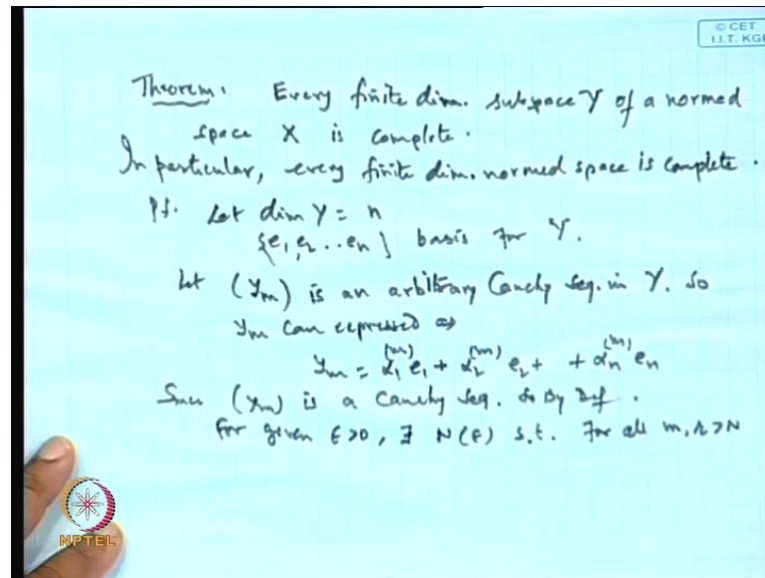 © CET
I.I.T. KGP
Theorem. Every finite dim. subspace Y of a normed
space X is complete.
In particular, every finite dim. normed space is complete.
Pf. Let dim Y = n
{e₁, e₂ .. eₙ} basis for Y.
Let (yₘ) is an arbitrary Cauchy seq. in Y. So
yₘ can expressed as
yₘ = α₁⁽ᵐ⁾ e₁ + α₂⁽ᵐ⁾ e₂ + + αₙ⁽ᵐ⁾ eₙ
Since (yₘ) is a Cauchy Seq. So By Def.
For given ϵ>0, ∃ N(ϵ) s.t. For all m, r > N
NPTEL